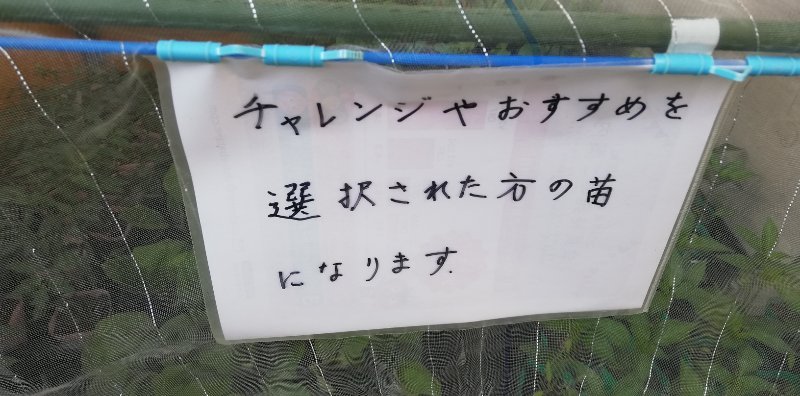 チャレンジやおすすめを
選択された方の苗
になります.